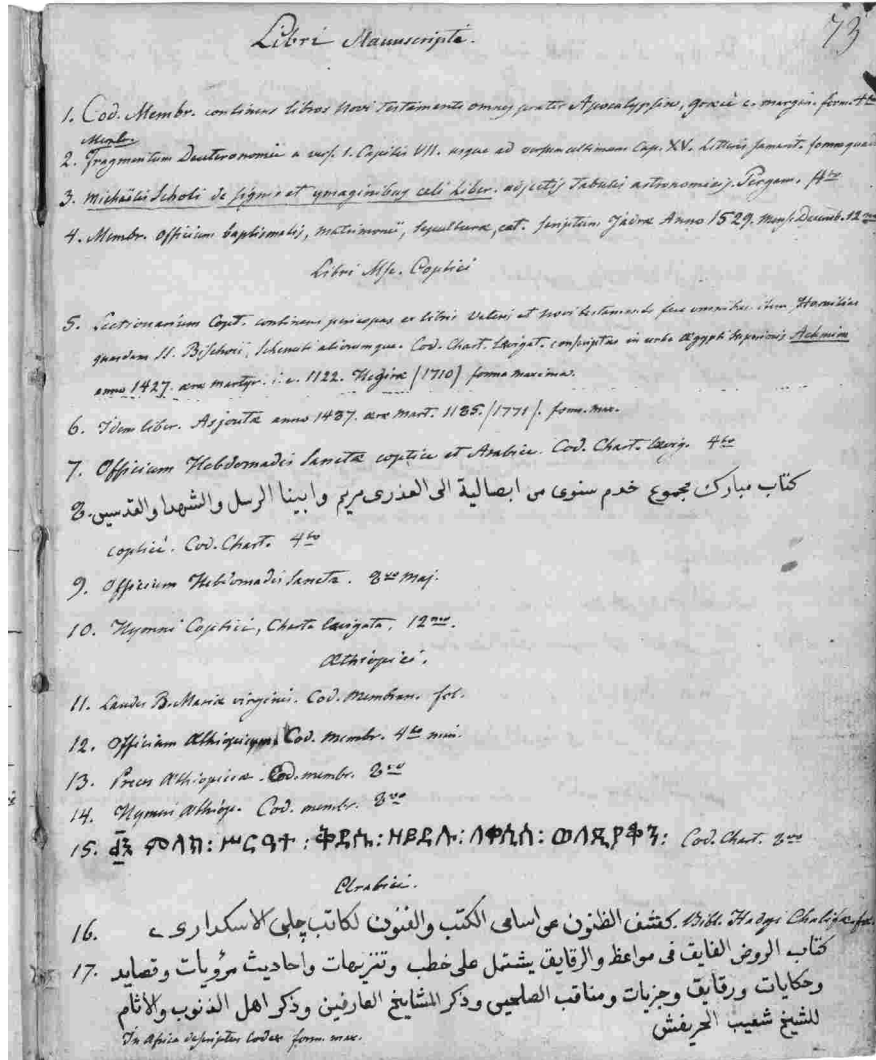 73
Libri Manuscripti.
1. Cod. Membr. continens libros Novi Testamenti omnes praeter Apocalypsin, graece c. margin. form. 4to
Membr.
2. Fragmentum Deuteronomii a vers. 1. Capitis VII. usque ad versum ultimum Cap. XV. Litteris samarit. forma quad
3. Michaëlis Scholi de signis et ymaginibus celi Liber. adjectis tabulis astronomicis. Pergam. 4to
4. Membr. Officium baptismatis, matrimonii, sepulturae, cet. scriptum Jadrae Anno 1529. Mens. Decemb. 12mo
Libri Mss. Coptici
5. Lectionarium Copt. continens pericopas ex libris Veteris et Novi testamenti fere omnibus item Homilias
quasdam St. Bischoii, Schenuti aliorumque. Cod. Chart. laevigat. conscriptus in urbe Aegypti Superioris Achmim
anno 1427. aerae martyr. i. e. 1122. Hegirae (1710) forma maxima.
6. Idem liber. Asjoutae anno 1487. aerae mart. 1185. (1771). form. max.
7. Officium Hebdomadis Sanctae coptice et Arabice. Cod. Chart. laevig. 4to
8. كتاب مبارك مجموع خدم سنوى من ابصالية الى العذرى مريم وابينا الرسل والشهدا والقدسين
coptice. Cod. Chart. 4to
9. Officium Hebdomadis Sanctae. 8vo maj.
10. Hymni Coptici, Charta laevigata, 12mo.
Aethiopici.
11. Laudes B. Mariae virginis. Cod. Membran. fol.
12. Officium Aethiopicum. Cod. membr. 4to min.
13. Preces Aethiopicae. Cod. membr. 8vo
14. Hymni Aethiop. Cod. membr. 8vo
15. ሥርዓተ : ቅዳሴ : Cod. Chart. 8vo
Arabici.
16. كشف الظنون عن اسامى الكتب والفنون لكاتب چلبى الاسكدارى Bibl. Hadgi Chalifae fol.
17. كتاب الروض الفايق فى مواعظ والرقايق يشتمل على خطب وتنزيهات واحاديث مرويات وقصايد
وحكايات ورقايق وجزيات ومناقب الصلحين وذكر المشايخ العارفين وذكر اهل الذنوب والاثام
للشيخ شعيب الحريفش
In Africa descriptus Codex form. max.